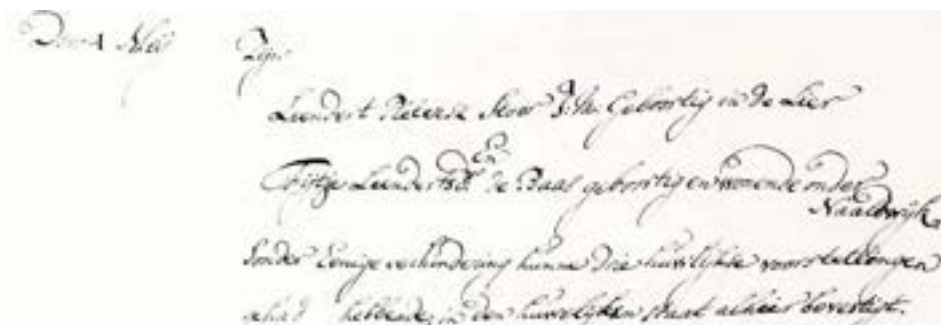 Den 4 Meij Zijn
Leendert Pieterse Stoor J:M: Geboortig in de Lier
En
Leendertsdr. de Baas geboortig en wonende onder
Naaldwijk
Sonder Eenige verhindering hunne drie huwelijkse voorstellingen
gehad hebbende, in den huwelijken staat alhier bevestigt.